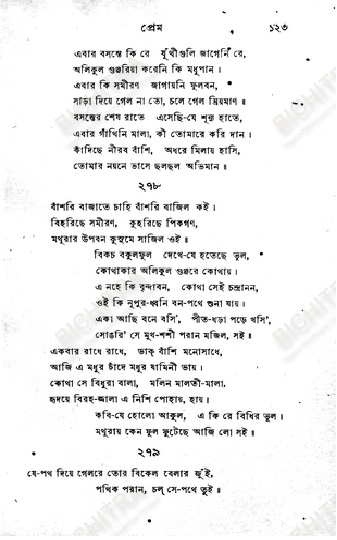 প্রেম ১২৩
এবার বসন্তে কি রে যূথীগুলি জাগেনি রে,
অলিকুল গুঞ্জরিয়া করেনি কি মধুপান।
এবার কি সমীরণ জাগায়নি ফুলবন,
সাড়া দিয়ে গেল না তো, চলে গেল ম্রিয়মাণ॥
বসন্তের শেষ রাতে এসেছি-যে শূন্য হাতে,
এবার গাঁথিনি মালা, কী তোমারে করি দান।
কাঁদিছে নীরব বাঁশি, অধরে মিলায় হাসি,
তোমার নয়নে ভাসে ছলছল অভিমান॥
২৭৮
বাঁশরি বাজাতে চাহি বাঁশরি বাজিল কই।
বিহরিছে সমীরণ, কুহরিছে পিকগণ,
মথুরার উপবন কুসুমে সাজিল ওই॥
বিকচ বকুলফুল দেখে-যে হতেছে ভুল,
কোথাকার অলিকুল গুঞ্জরে কোথায়।
এ নহে কি বৃন্দাবন, কোথা সেই চন্দ্রানন,
ওই কি নূপুর-ধ্বনি বন-পথে শুনা যায়।
একা আছি বনে বসি', পীত-ধড়া পড়ে খসি',
সোঙরি' সে মুখ-শশী পরান মজিল, সই॥
একবার রাধে রাধে, ডাক্ বাঁশি মনোসাধে,
আজি এ মধুর চাঁদে মধুর যামিনী ভায়।
কোথা সে বিধুরা বালা, মলিন মালতী-মালা,
হৃদয়ে বিরহ-জ্বালা এ নিশি পোহায়, হায়।
কবি-যে হোলো আকুল, এ কি রে বিধির ভুল।
মথুরায় কেন ফুল ফুটেছে আজি লো সই॥
২৭৯
যে-পথ দিয়ে গেলরে তোর বিকেল বেলার জুঁই,
পথিক পরান, চল্ সে-পথে তুই॥